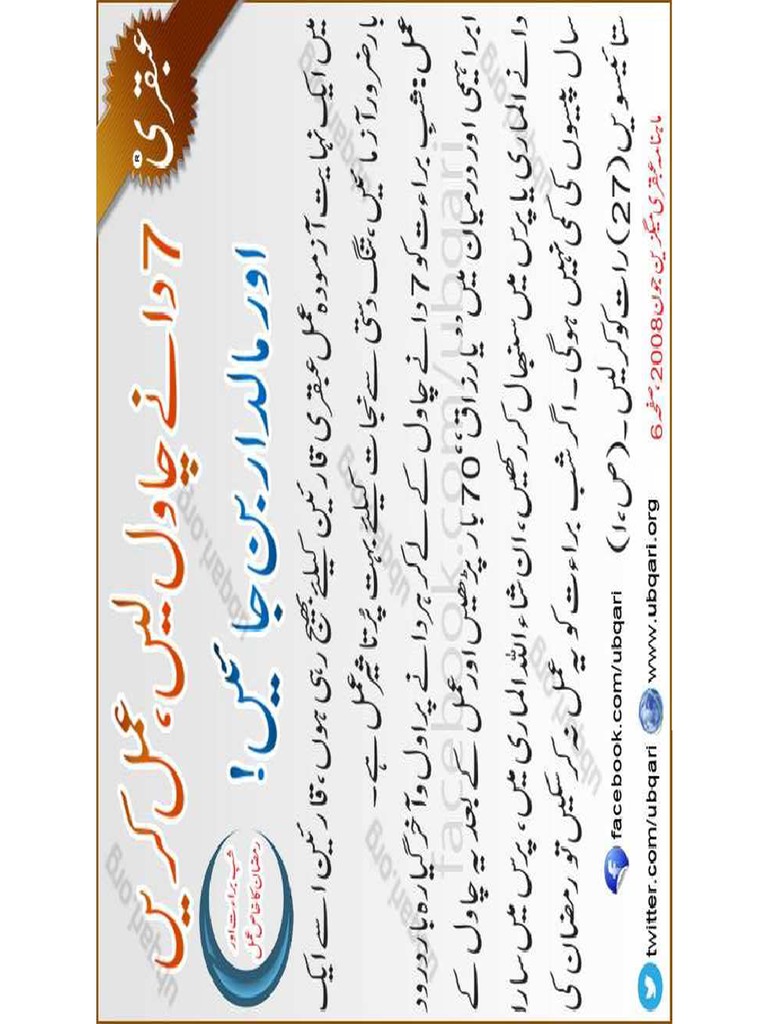 عبقری
®
7 دانے چاول لیں، عمل کریں
اور مالدار بن جائیں!
شب برأت اور
رمضان کا خاص عمل
میں ایک نہایت آزمودہ عمل عبقری قارئین کیلئے بھیج رہی ہوں، قارئین اسے ایک
بار ضرور آزمائیں، تنگ دستی سے نجات کیلئے بہت پُرتاثیر عمل ہے۔
عمل: شبِ براءت کو 7 دانے چاول کے لے کر ہر دانے پر اول و آخر گیارہ بار درود
ابراہیمی اور درمیان میں ’’یارزاق‘‘ 70 بار پڑھیں اور عمل کے بعد یہ چاول کے
دانے الماری یا پرس میں سنبھال کر رکھیں، ان شاء اللہ الماری میں، پرس میں سارا
سال پیسوں کی کمی نہیں ہوگی۔ اگر شب براءت کو یہ عمل نہ کرسکیں تو رمضان کی
ستائیسویں (27) رات کو کرلیں۔ (ص،ا)
ماہنامہ عبقری میگزین جون 2008، صفحہ 6
facebook.com/ubqari
twitter.com/ubqari
www.ubqari.org
facebook.com/ubqari
ubqari.org